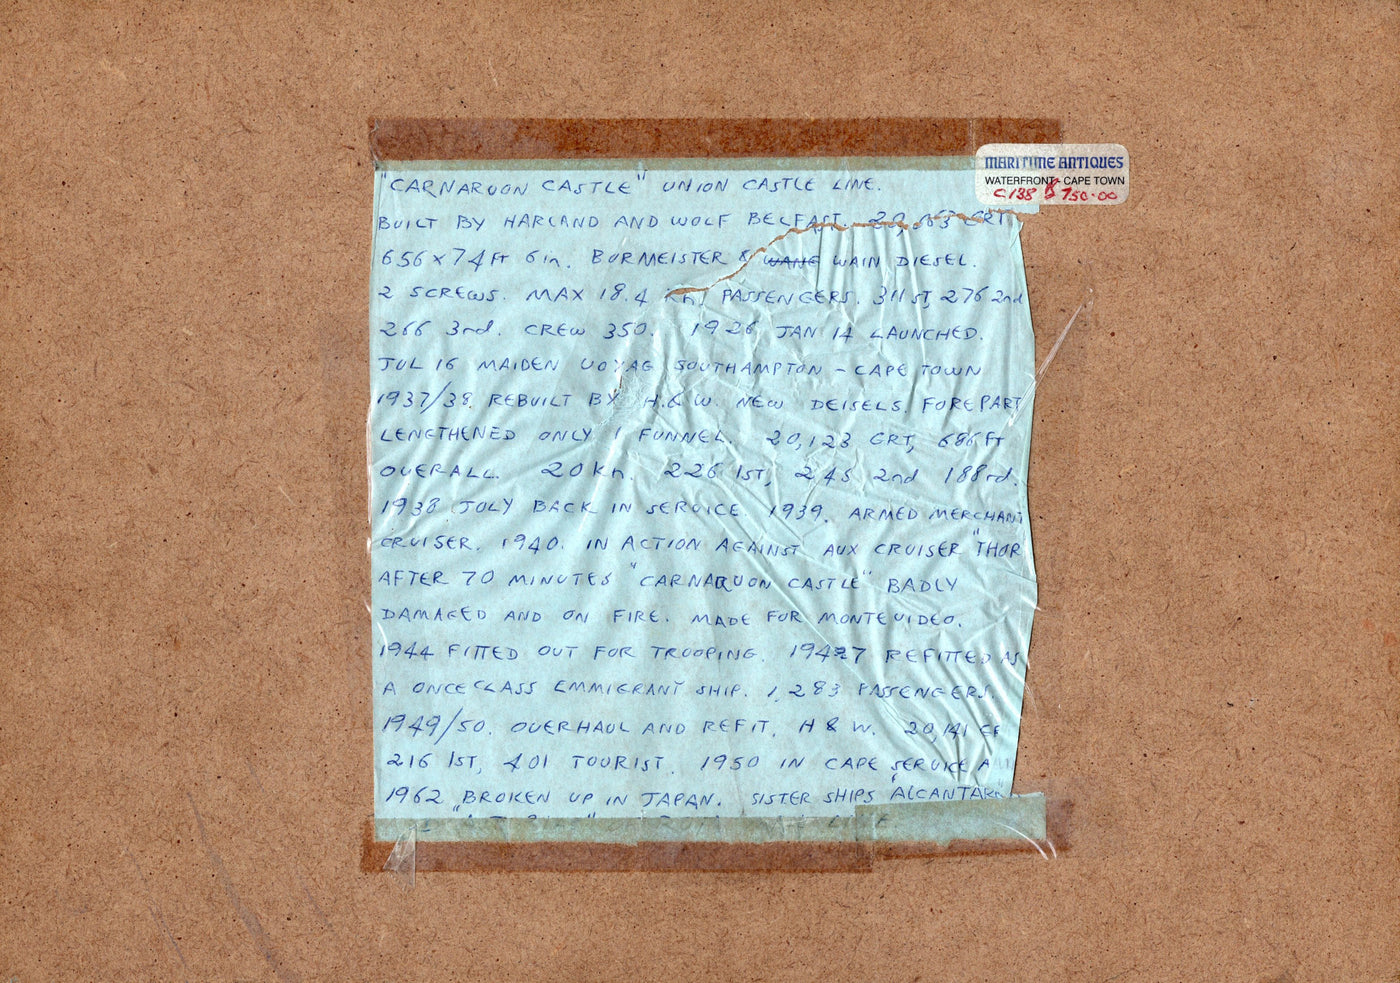 MARITIME ANTIQUES
WATERFRONT - CAPE TOWN
C138 R 750.00
"CARNARVON CASTLE" UNION CASTLE LINE.
BUILT BY HARLAND AND WOLF BELFAST. 20,063 GRT
656 x 74 FT 6 in. BURMEISTER & WANE WAIN DIESEL.
2 SCREWS. MAX 18.4 kn, PASSENGERS. 311 ST, 276 2nd
266 3rd. CREW 350. 1926 JAN 14 LAUNCHED.
JUL 16 MAIDEN VOYAG SOUTHAMPTON - CAPE TOWN
1937/38. REBUILT BY H.& W. NEW DEISELS. FOREPART
LENGTHENED ONLY 1 FUNNEL. 20,123 GRT, 686 Ft
OVERALL. 20 kn. 226 1ST, 245 2nd 188 rd.
1938 JULY BACK IN SERVICE. 1939. ARMED MERCHANT
CRUISER. 1940. IN ACTION AGAINST AUX CRUISER "THOR
AFTER 70 MINUTES "CARNARVON CASTLE" BADLY
DAMAGED AND ON FIRE. MADE FOR MONTEVIDEO.
1944 FITTED OUT FOR TROOPING. 1947 REFITTED AS
A ONCE CLASS EMMIGRANT SHIP. 1,283 PASSENGERS.
1949/50. OVERHAUL AND REFIT. H & W. 20,141
216 1ST, 401 TOURIST. 1950 IN CAPE SERVICE
1962 BROKEN UP IN JAPAN. SISTER SHIPS "ALCANTARA"
LINE